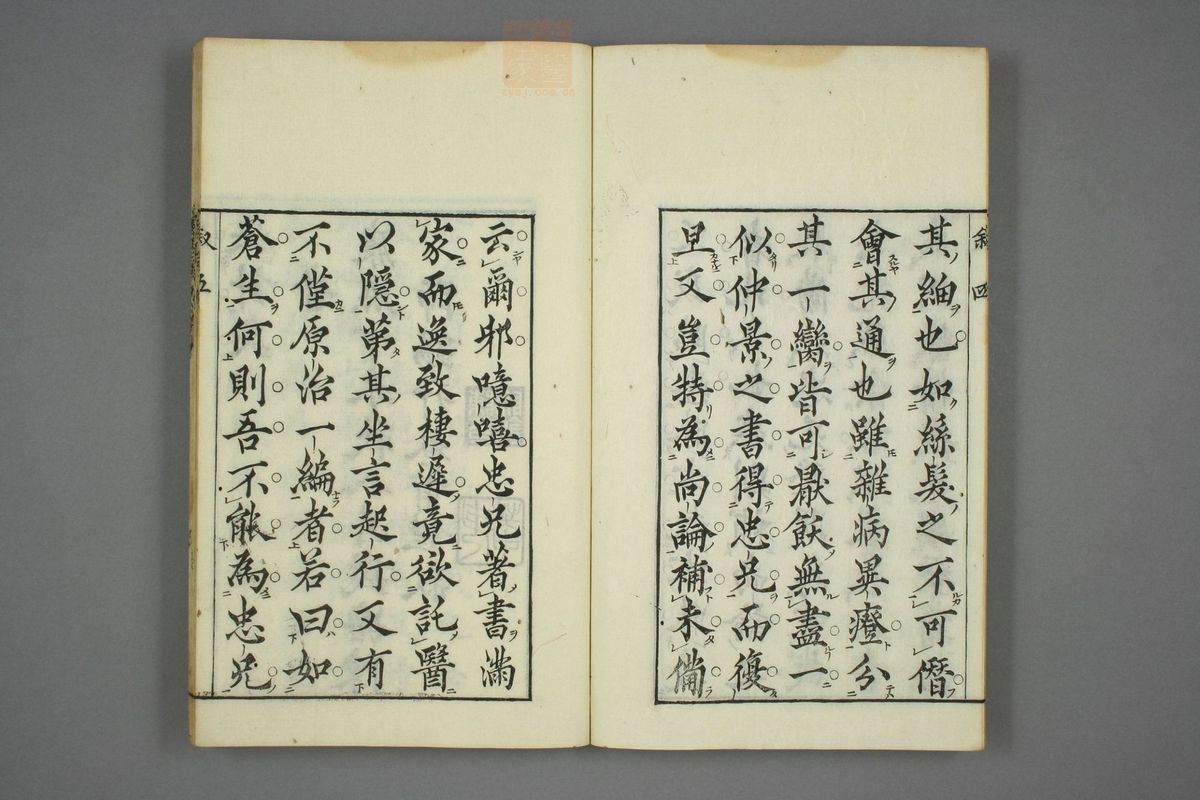 敍 四
其細也如絲髮之不可僭
會其通也雖雜病異證分
其一臠皆可厭飫無盡一
似仲景之書得忠兄而復
旦又豈特為尚論補未備
云爾邪噫嘻忠兄著書滿
家而逸致棲遲竟欲託醫
以隱第其坐言起行又有
不僅原治一編者若曰如
蒼生何則吾不能為忠兄
敍 五
zysj.com.cn